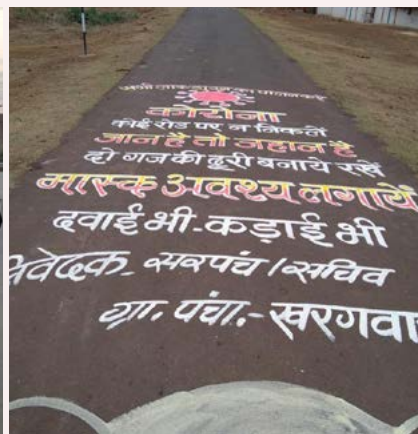 का पालन करें
कोरोना
कोई रोड पर न निकलें
जान है तो जहान है
दो गज की दूरी बनाये रखें
मास्क अवश्य लगायें
दवाई भी-कड़ाई भी
निवेदक- सरपंच/सचिव
ग्रा. पंचा.-खरगवा